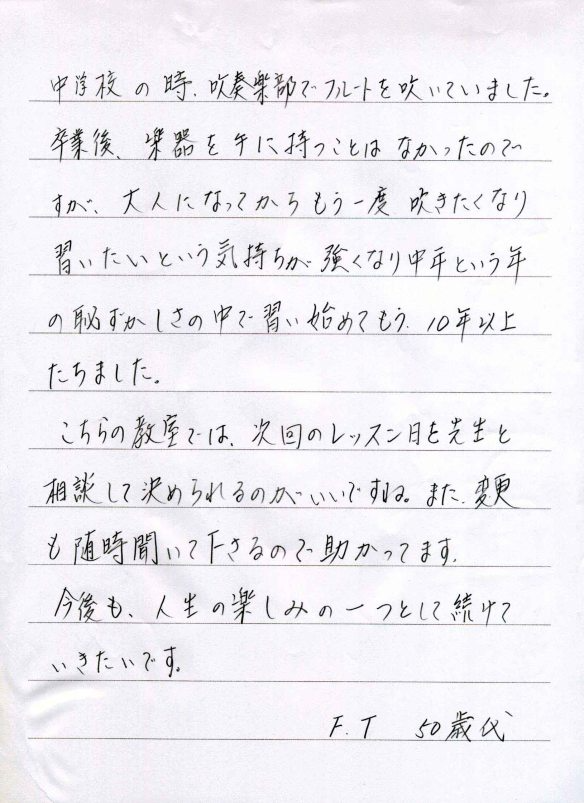 中学校の時、吹奏楽部でフルートを吹いていました。
卒業後、楽器を手に持つことはなかったので
すが、大人になってからもう一度吹きたくなり
習いたいという気持ちが強くなり中年という年
の恥ずかしさの中で習い始めてもう、10年以上
たちました。
こちらの教室では、次回のレッスン日を先生と
相談して決められるのがいいですね。また、変更
も随時聞いて下さるので助かってます。
今後も、人生の楽しみの一つとして続けて
いきたいです。
F.T 50歳代